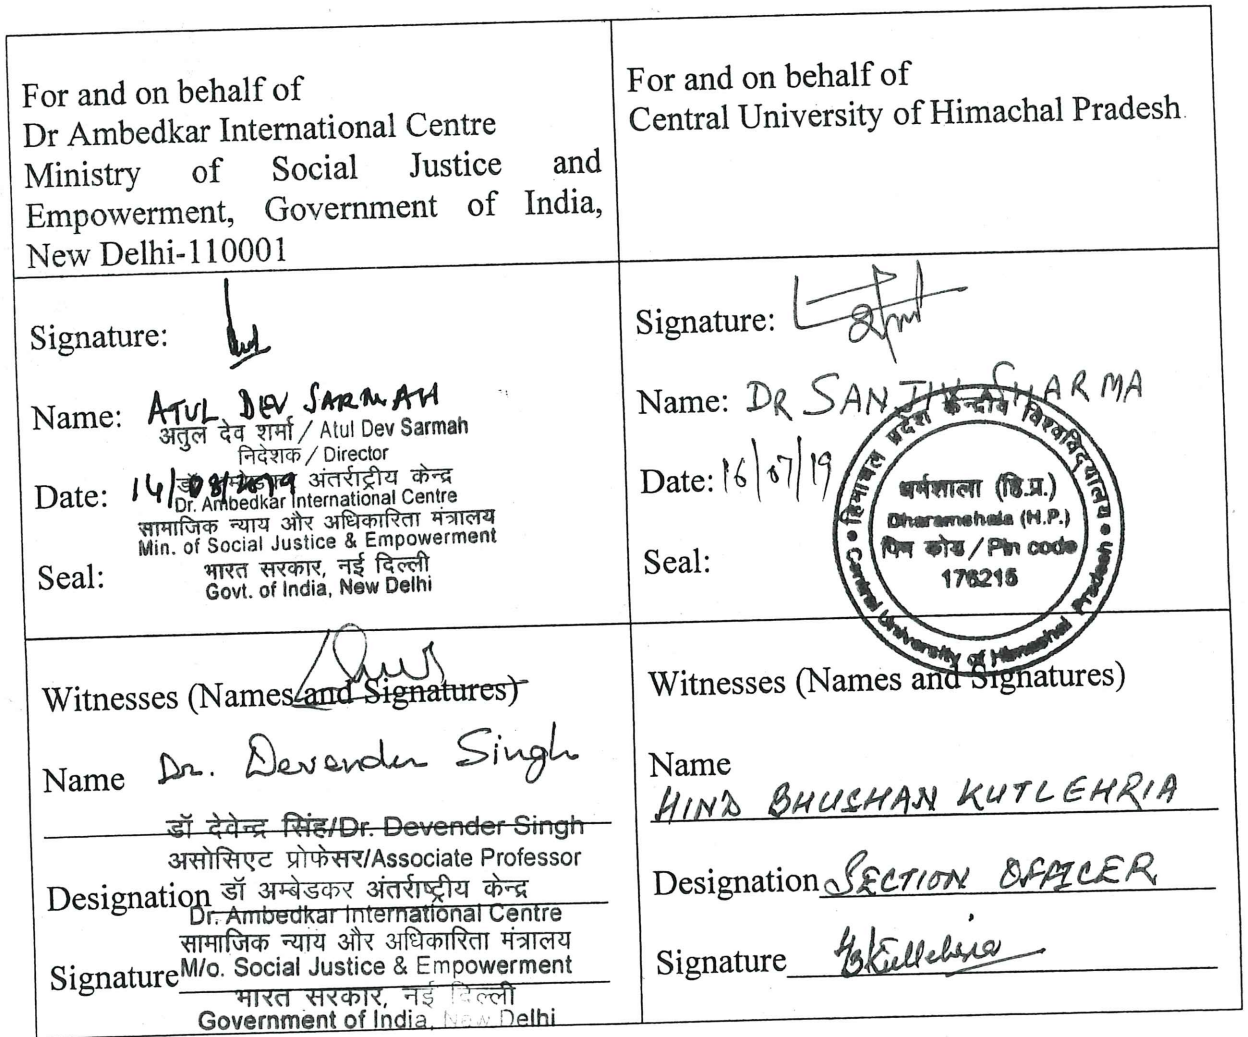 For and on behalf of
Dr Ambedkar International Centre
Ministry of Social Justice and
Empowerment, Government of India,
New Delhi-110001
For and on behalf of
Central University of Himachal Pradesh
Signature:
Name: ATUL DEV SARMAH
अतुल देव शर्मा / Atul Dev Sarmah
निदेशक / Director
Date: 14/08/2019
अंतर्राष्ट्रीय केन्द्र
Dr. Ambedkar International Centre
सामाजिक न्याय और अधिकारिता मंत्रालय
Min. of Social Justice & Empowerment
Seal:
भारत सरकार, नई दिल्ली
Govt. of India, New Delhi
Signature:
Name: DR SANJIV SHARMA
Date: 16/07/19
Seal:
हिमाचल प्रदेश केन्द्रीय विश्वविद्यालय
धर्मशाला (हि.प्र.)
Dharamshala (H.P.)
पिन कोड / Pin code
176215
Central University of Himachal Pradesh
Witnesses (Names and Signatures)
Name Dr. Devender Singh
डॉ देवेन्द्र सिंह/Dr. Devender Singh
असोसिएट प्रोफेसर/Associate Professor
Designation डॉ अम्बेडकर अंतर्राष्ट्रीय केन्द्र
Dr. Ambedkar International Centre
सामाजिक न्याय और अधिकारिता मंत्रालय
Signature M/o. Social Justice & Empowerment
भारत सरकार, नई दिल्ली
Government of India, New Delhi
Witnesses (Names and Signatures)
Name
HIND BHUSHAN KUTLEHRIA
Designation SECTION OFFICER
Signature HBKutlehria